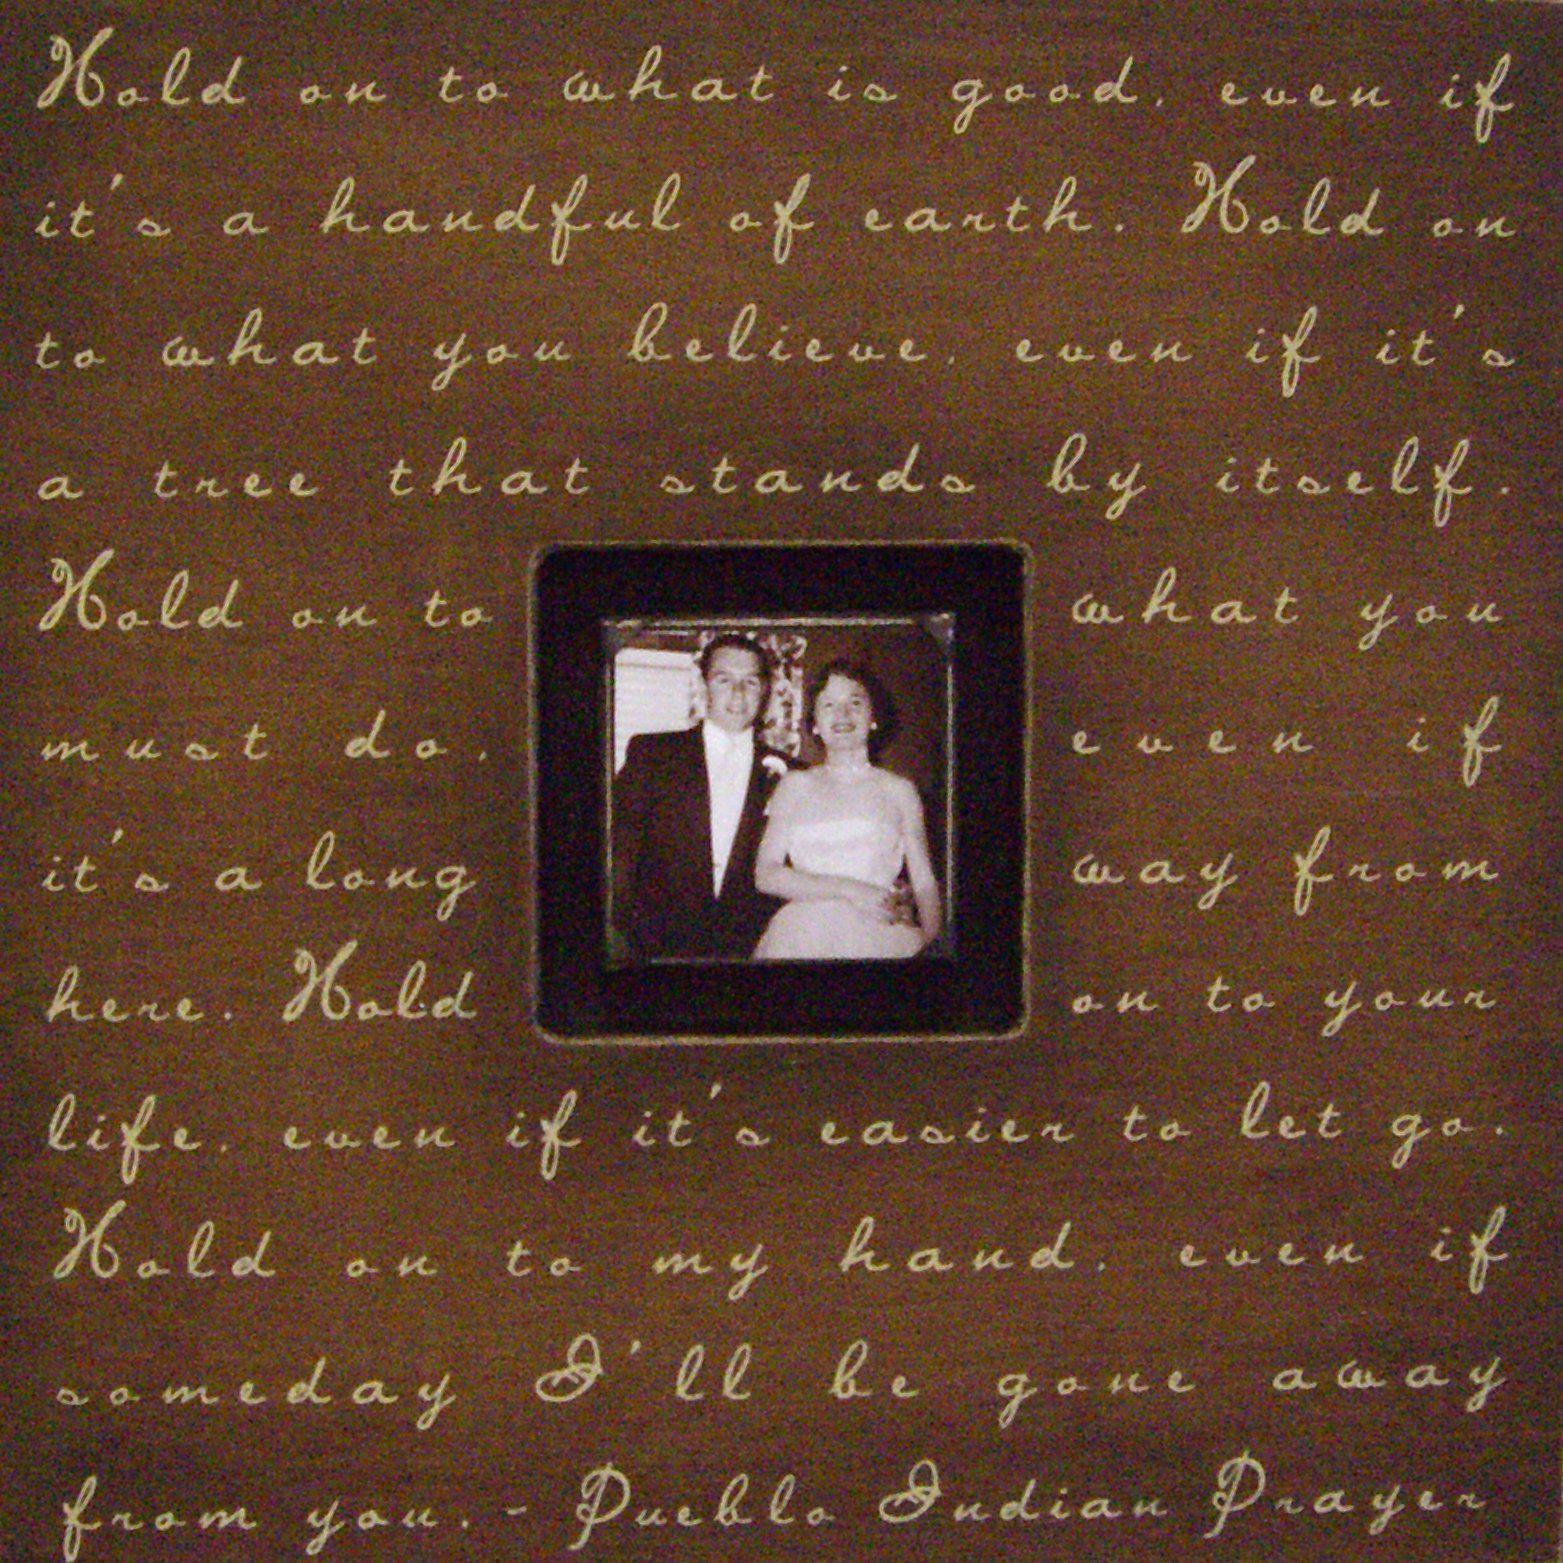 Hold on to what is good, even if
it's a handful of earth. Hold on
to what you believe, even if it's
a tree that stands by itself.
Hold on to what you
must do, even if
it's a long way from
here. Hold on to your
life, even if it's easier to let go.
Hold on to my hand, even if
someday I'll be gone away
from you. - Pueblo Indian Prayer